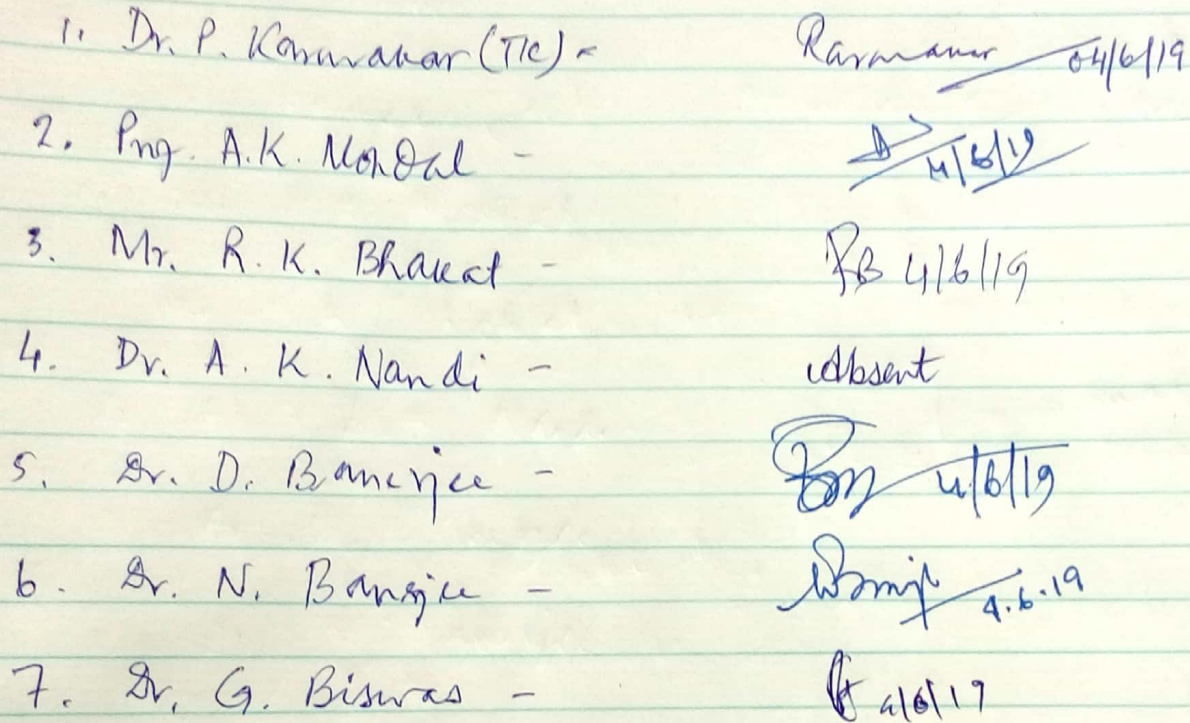 1. Dr. P. Karmakar (TIC) - 04/6/19
2. Prof. A.K. Mondal - 4/6/19
3. Mr. R. K. Bhakat - RB 4/6/19
4. Dr. A. K. Nandi - Absent
5. Dr. D. Banerjee - 4/6/19
6. Dr. N. Banerjee - 4.6.19
7. Dr. G. Biswas - 4/6/19